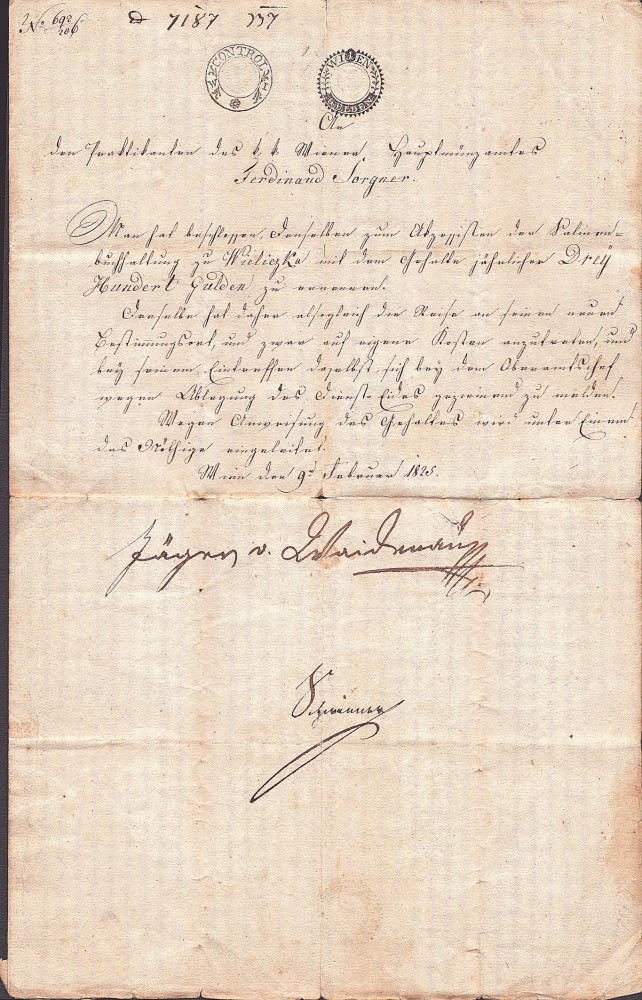 No 692/206
7187
CONTROL
WIEN
1
GULDEN
An
den Praktikanten des k. k. Wiener Hauptmünzamtes
Ferdinand Sorgner.
Man hat beschlossen, denselben zum Akzessisten der Salinen=
buchhaltung zu Wieliczka mit dem Gehalte jährlicher Drey
Hundert Gulden zu ernennen.
Derselbe hat daher alsogleich die Reise an seinen neuen
Bestimmungsort, und zwar auf eigene Kosten anzutreten, und
bey seinem Eintreffen daselbst, sich bey dem Oberamtschef
wegen Ablegung des Dienst-Eides geziemend zu melden.
Wegen Anweisung des Gehaltes wird unter Einem
das Nöthige eingeleitet.
Wien den 9. Februar 1825.
Jäger v. Waidenau